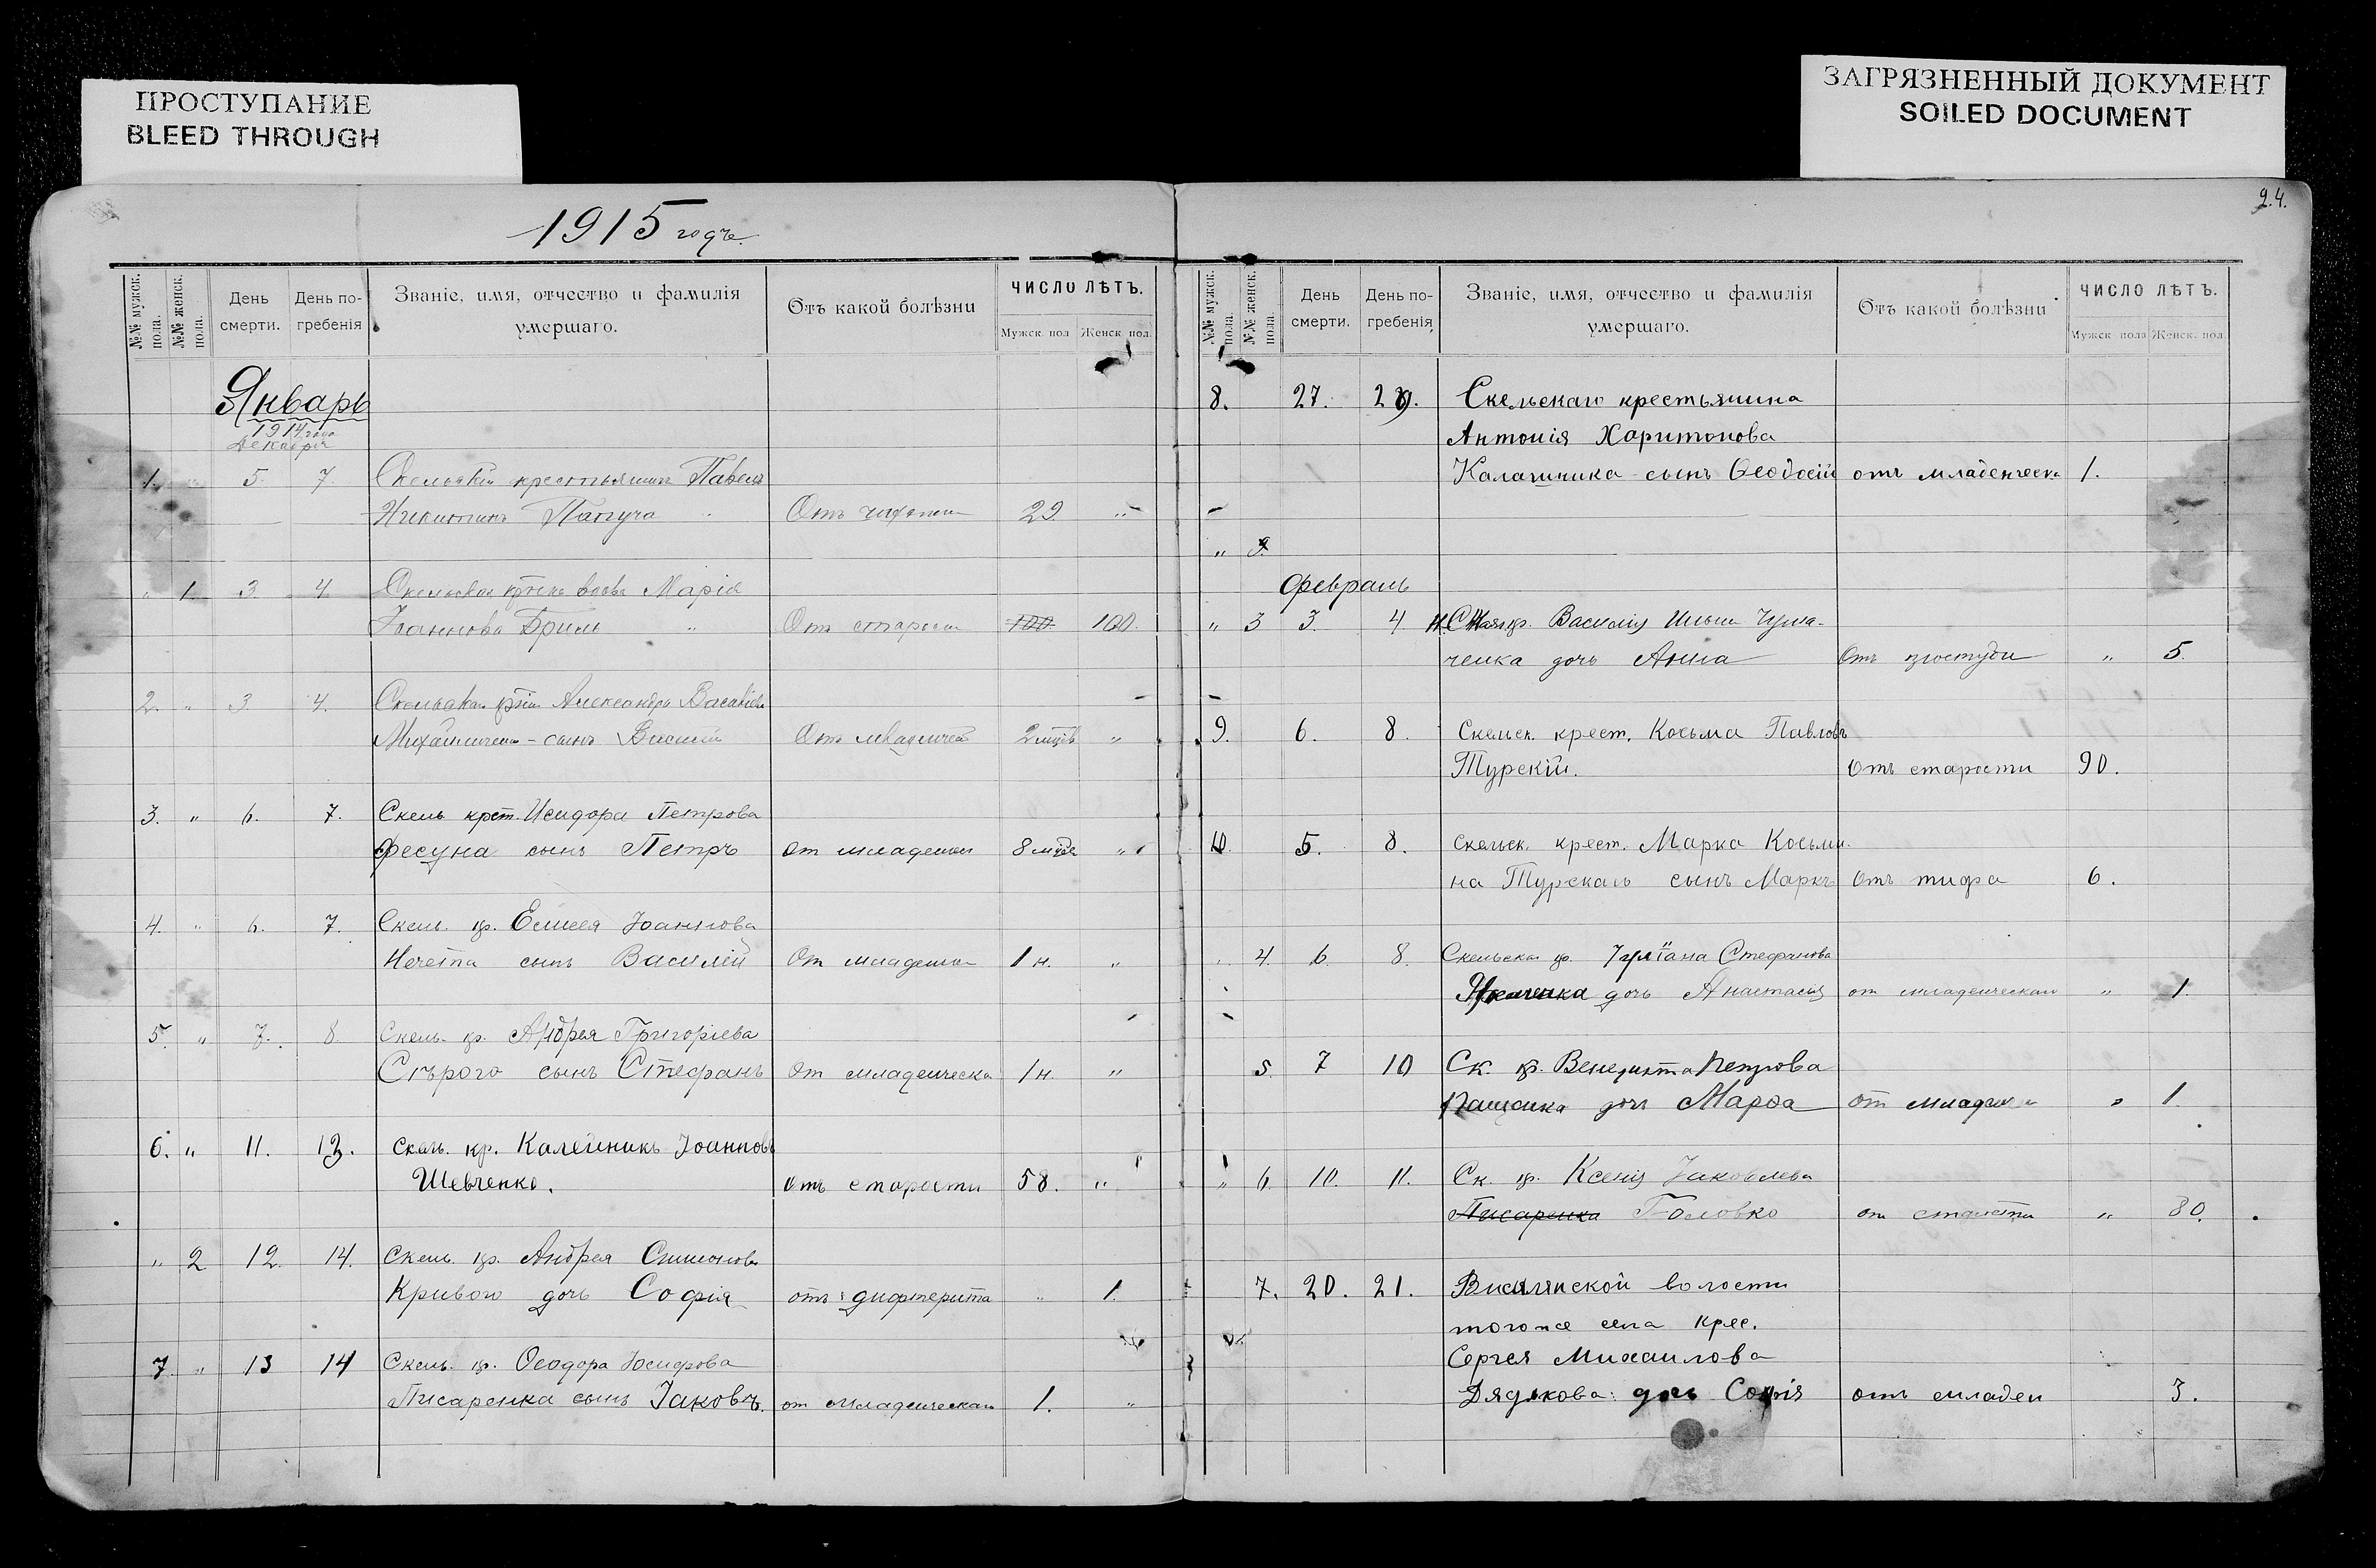 ПРОСТУПАНИЕ
BLEED THROUGH
ЗАГРЯЗНЕННЫЙ ДОКУМЕНТ
SOILED DOCUMENT
24.
1915 годъ.
№№ мужск. пола.
№№ женск. пола.
День смерти.
День погребенія
Званіе, имя, отчество и фамилія умершаго.
Отъ какой болѣзни
ЧИСЛО ЛѢТЪ.
Мужск. пол
Женск. пол.
Январь
1914 года
Декабря
1. „ 5. 7. Скельскій крестьянинъ Павелъ
Никитинъ Папуча Отъ 29. „
„ 1. 3. 4. Скельская вдова Марія
Іоаннова Бриль „ Отъ старости 100. 100.
2. „ 3. 4. Александра
сынъ Василій Отъ 2 „
3. „ 6. 7. Скель крест. Исидора Петрова
Фесуна сынъ Петръ от 8 „
4. „ 6. 7. Скель. кр. Елисея Іоаннова
Нечета сынъ Василій От 1 н. „
5. „ 7. 8. Скель. кр. Андрея Григоріева
Сѣрого сынъ Стефанъ От младенческа 1 н. „
6. „ 11. 13. Скель. кр. Калейникъ Іоанновъ
Шевченко. отъ старости 58. „
„ 2 12. 14. Скель. кр. Андрея Симонова
Кривого дочь Софія отъ дифтерита „ 1.
7. „ 13 14 Скель. кр. Ѳеодора Іосифова
Писаренка сынъ Іаковъ. от младенческаго 1. „
№№ мужск. пола.
№№ женск. пола.
День смерти.
День погребенія
Званіе, имя, отчество и фамилія умершаго.
Отъ какой болѣзни
ЧИСЛО ЛѢТЪ.
Мужск пола
Женск. пол.
8. 27. 29. Скельскаго крестьянина
Антонія Харитонова
Калашника сынъ Ѳеодосій отъ младенческа 1.
„
Февраль
„ 3 3. 4 Василія Ильина Чума-
ченка дочь Анна Отъ простуды „ 5.
9. 6. 8. Скельск. крест. Косьма Павловъ
Турскій. Отъ старости 90.
10. 5. 8. Скельск. крест. Марка Косьми-
на Турскаго сынъ Маркъ Отъ тифа 6.
4. 6. 8. Скельская кр. Стефанова
дочь Анастасія от младенческаго „ 1.
5. 7 10 Ск. кр. Венедикта Петрова
Пащенка дочь Марѳа от „ 1.
„ 6. 10. 11. Ск. кр. Ксенія Іаковлева
Писаренка Головко от старости „ 80.
7. 20. 21. волости
того же села крес.
Сергея Михаилова
Дядькова дочь Софія отъ младен 3.